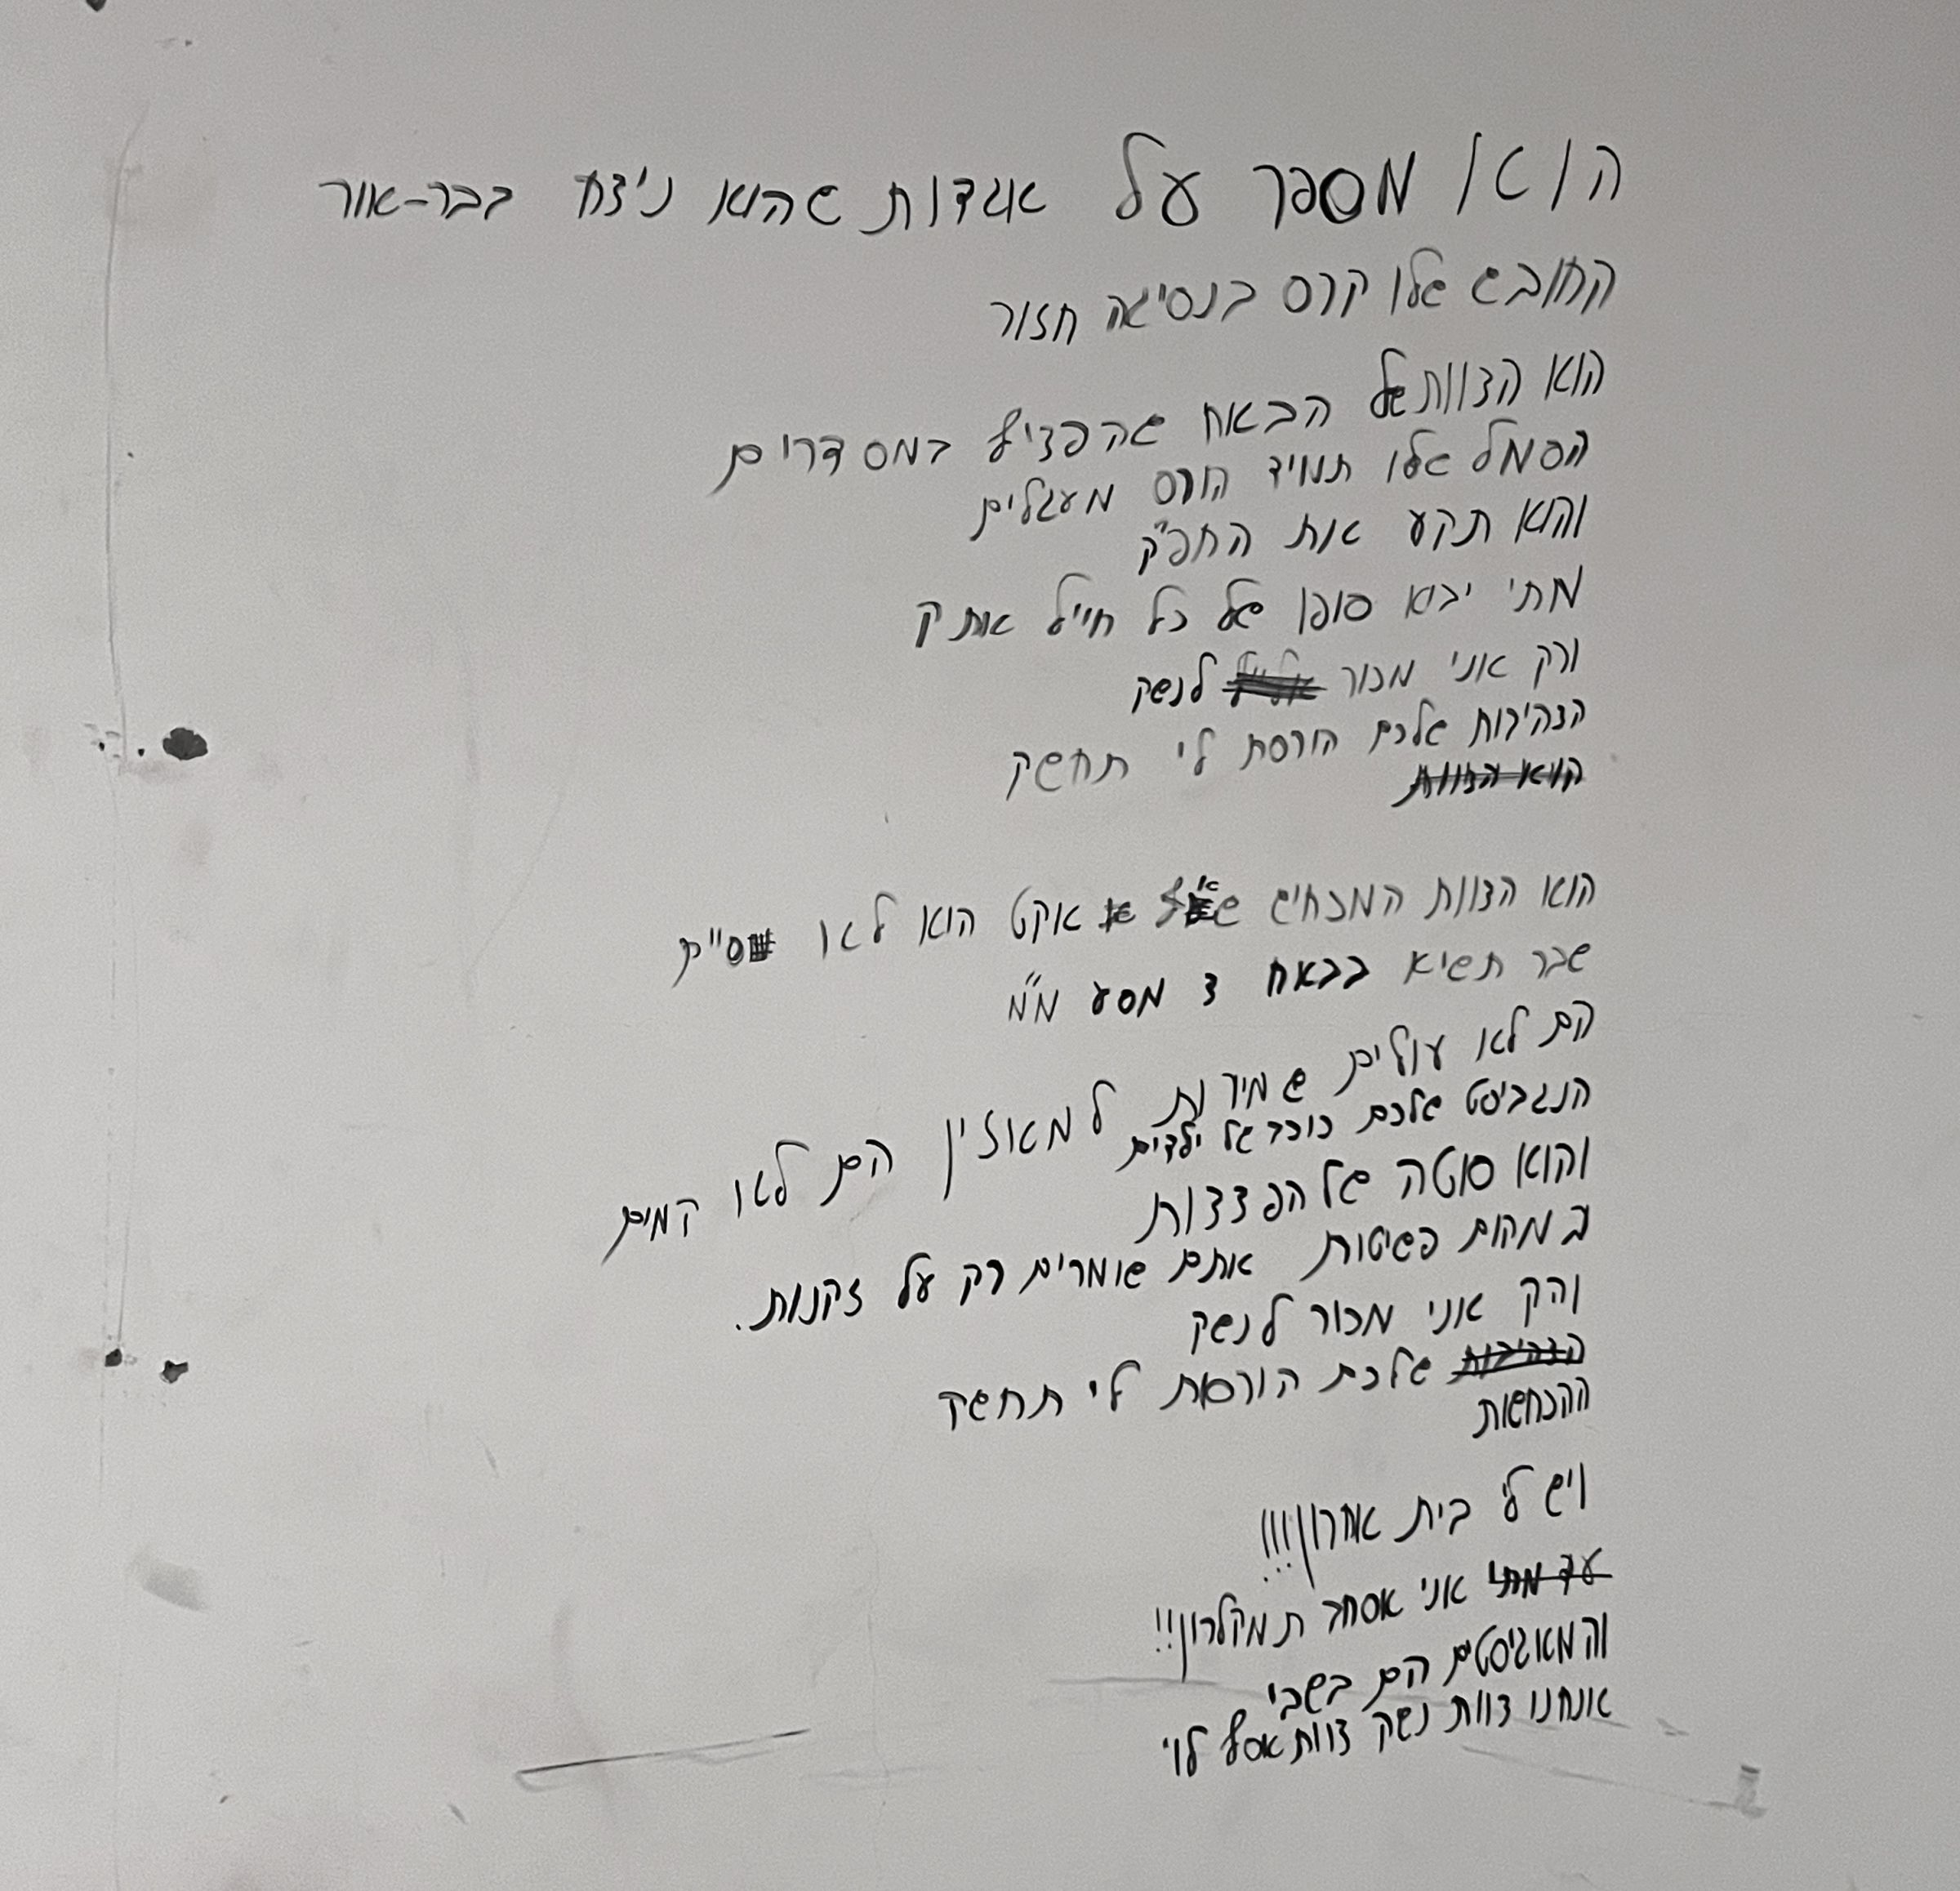 הוא מספר על אגדות שהוא ניצח בבר-אור
החובש שלו קרס בנסיגה חזור
הוא הצוות של הבאח שהפציץ במסדרים
הסמל שלו תמיד הורס מעגלים
והוא תקע את החפ"ק
מתי יבוא סופן של כל חייל אותק
ורק אני מכור לנשק
הצהיבות שלכם הורסת לי תחשק
הוא הצוות המכחיש שאין אקט הוא לא סיים
שבר תשיא בבאח 3 מסע מ"מ
הם לא עולים שמירות למאזין הם לא קמים
הנגביסט שלכם כוכב של ילדים
והוא סוטה של הפצצות
במקום פשיטות אתם שומרים רק על זקנות.
ורק אני מכור לנשק
שלכם הורסת לי תחשק
ההכחשות
ויש לי בית אחרון!!!
אני אסחב ת מקלרון!!
והמאגיסטים הם בשבי
אנחנו צוות נשק צוות אסף לוי